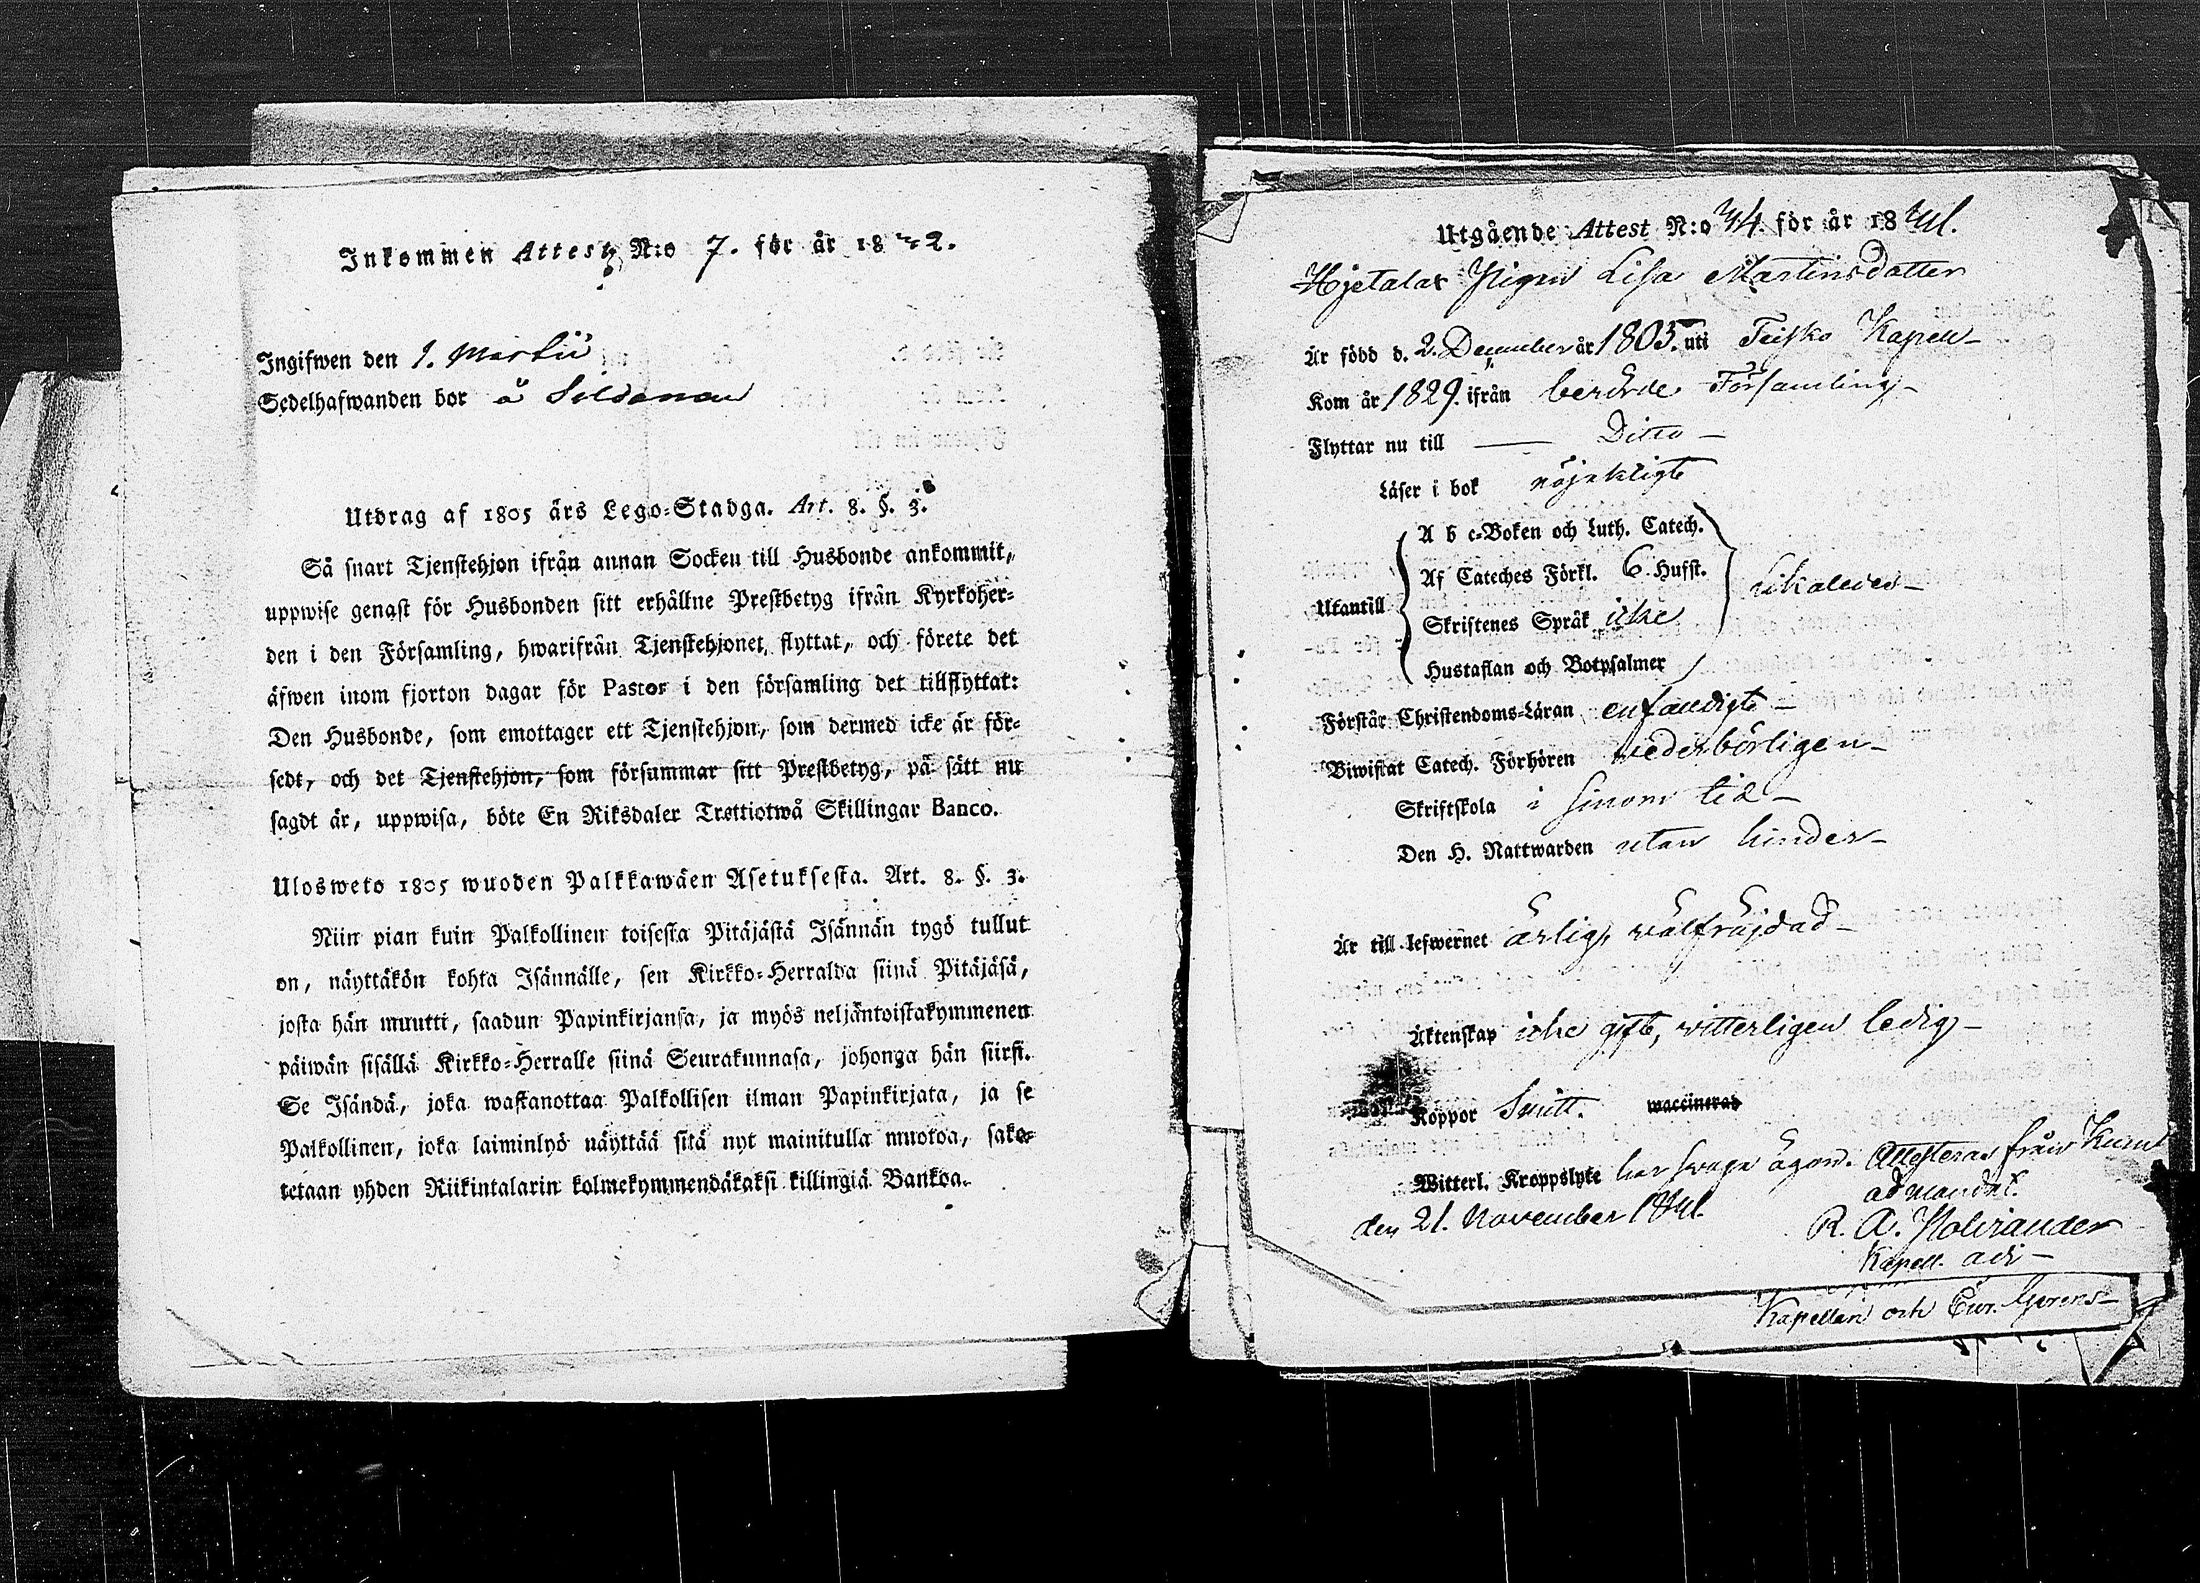 Inkommen Attest N:o 7. för år 1842.
Ingifwen den 1. Martii
Sedelhafwanden bor å
Utdrag af 1805 års Lego-Stadga. Art. 8. §. 3.
Så snart Tjenstehjon ifrån annan Socken till Husbonde ankommit,
uppwise genast för Husbonden sitt erhållne Prestbetyg ifrån Kyrkoher-
den i den Församling, hwarifrån Tjenstehjonet flyttat, och förete det
äfwen inom fjorton dagar för Pastor i den församling det tillflyttat:
Den Husbonde, som emottager ett Tjenstehjon, som dermed icke är för-
sedt, och det Tjenstehjon, som försummar sitt Prestbetyg, på sätt nu
sagdt är, uppwisa, böte En Riksdaler Trettiotwå Skillingar Banco.
Ulosweto 1805 wuoden Palkkawäen Asetuksesta. Art. 8. §. 3.
Niin pian kuin Palkollinen toisesta Pitäjästä Isännän tygö tullut
on, näyttäkön kohta Isännälle, sen Kirkko-Herralda siinä Pitäjäsä,
josta hän muutti, saadun Papinkirjansa, ja myös neljäntoistakymmenen
päiwän sisällä Kirkko-Herralle siinä Seurakunnasa, johonga hän siirsi.
Se Isändä, joka wastanottaa Palkollisen ilman Papinkirjata, ja se
Palkollinen, joka laiminlyö näyttää sitä nyt mainitulla muotoa, sako-
tetaan yhden Riikintalarin kolmekymmendäkaksi killingiä Bankoa.
Utgående Attest N:o 44. för år 1841.
Pigan Lisa Martinsdotter
Är född d. 2. December år 1803. uti Teisko Kapell
Kom år 1829. ifrån berörde Församling
Flyttar nu till — Ditto —
Läser i bok nöjaktigt
A b c-Boken och Luth. Catech.
Af Cateches Förkl. 6 Hufst.
Utantill likaledes
Skriftenes Språk icke
Hustaflan och Botpsalmer
Förstår Christendoms-Läran enfaldigt
Biwistat Catech. Förhören wederbörligen
Skriftskola i sinom tid
Den H. Nattwarden utan hinder
Är till lefwernet ärlig, wälfräjdad
Äktenskap icke gift, witterligen ledig
Koppor waccinerad
Witterl. Kroppslyte har swaga ögon. Attesteras från
den 21. November 1841.
ad mandat.
R. A.
Kapell. adj
Kapellan och